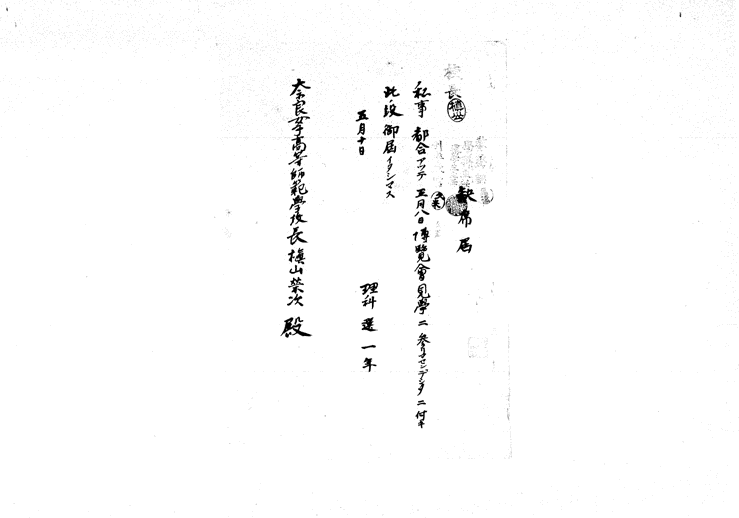 校長
欠席届
私事都合アツテ五月八日博覽會見學ニ参リマセンデシタニ付キ
此段御届イタシマス
五月十日
理科選一年
奈良女子高等師範學校長槇山榮次殿